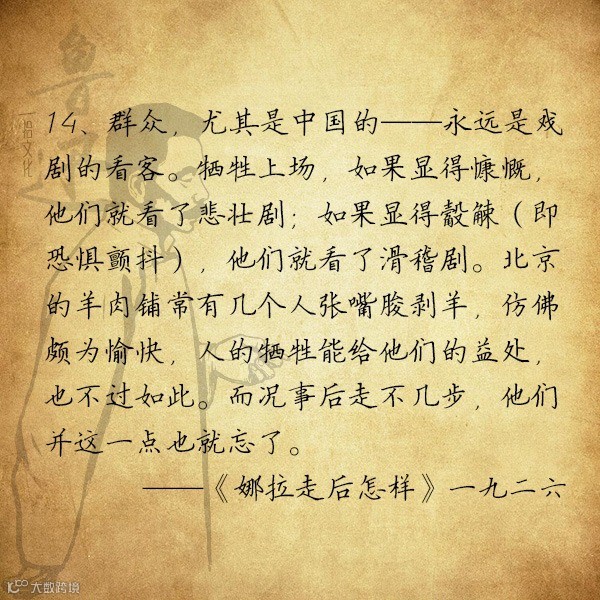 鲁迅
一日一拾文化
14、群众，尤其是中国的——永远是戏
剧的看客。牺牲上场，如果显得慷慨，
他们就看了悲壮剧；如果显得觳觫（即
恐惧颤抖），他们就看了滑稽剧。北京
的羊肉铺常有几个人张嘴胺剥羊，仿佛
颇为愉快，人的牺牲能给他们的益处，
也不过如此。而况事后走不几步，他们
并这一点也就忘了。
——《娜拉走后怎样》一九二六
大数跨境